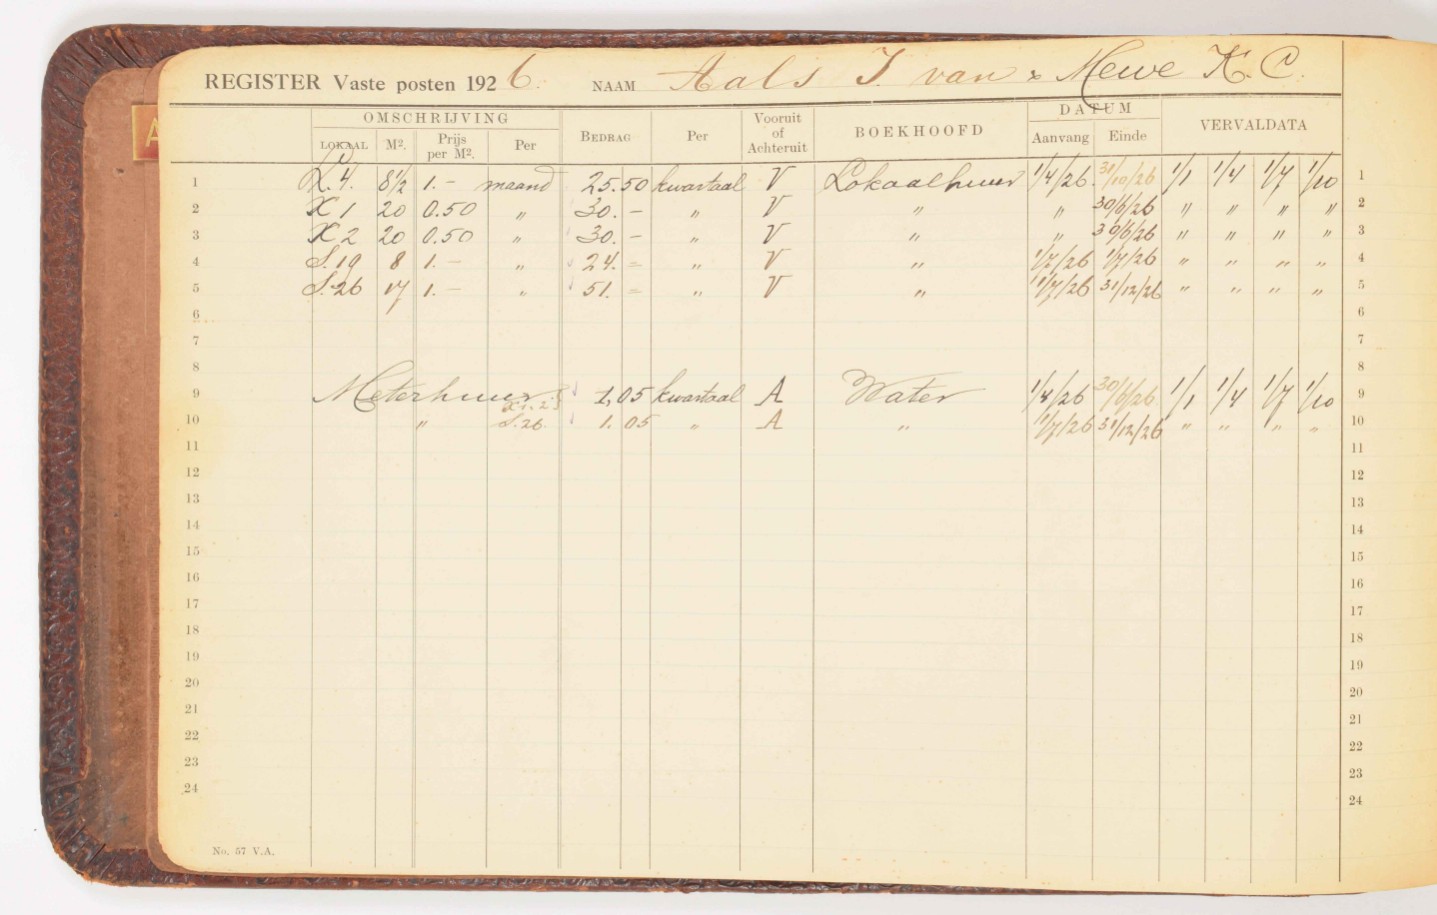 REGISTER Vaste posten 1926. NAAM Aals J. van & Mewe K. C.
OMSCHRIJVING BEDRAG Per Vooruit of Achteruit BOEKHOOFD DATUM VERVALDATA
LOKAAL M². Prijs per M². Per Aanvang Einde
1 L. 4. 8½ 1.- maand 25.50 kwartaal V Lokaalhuur 1/4/26. 31/10/26 1/1 1/4 1/7 1/10 1
2 X 1 20 0.50 „ 30.- „ V „ „ 30/6/26 „ „ „ „ 2
3 X 2 20 0.50 „ 30.- „ V „ „ 30/6/26 „ „ „ „ 3
4 S. 19 8 1.- „ 24.= „ V „ 1/7/26 „ „ „ „ 4
5 S. 26 17 1.- „ 51.= „ V „ 1/7/26 31/12/26 „ „ „ „ 5
6 6
7 7
8 8
9 Meterhuur X 1. 2. 1,05 kwartaal A Water 1/4/26 30/6/26 1/1 1/4 1/7 1/10 9
10 „ S. 26. 1.05 „ A „ 1/7/26 31/12/26 „ „ „ „ 10
11 11
12 12
13 13
14 14
15 15
16 16
17 17
18 18
19 19
20 20
21 21
22 22
23 23
24 24
No. 57 V.A.
A